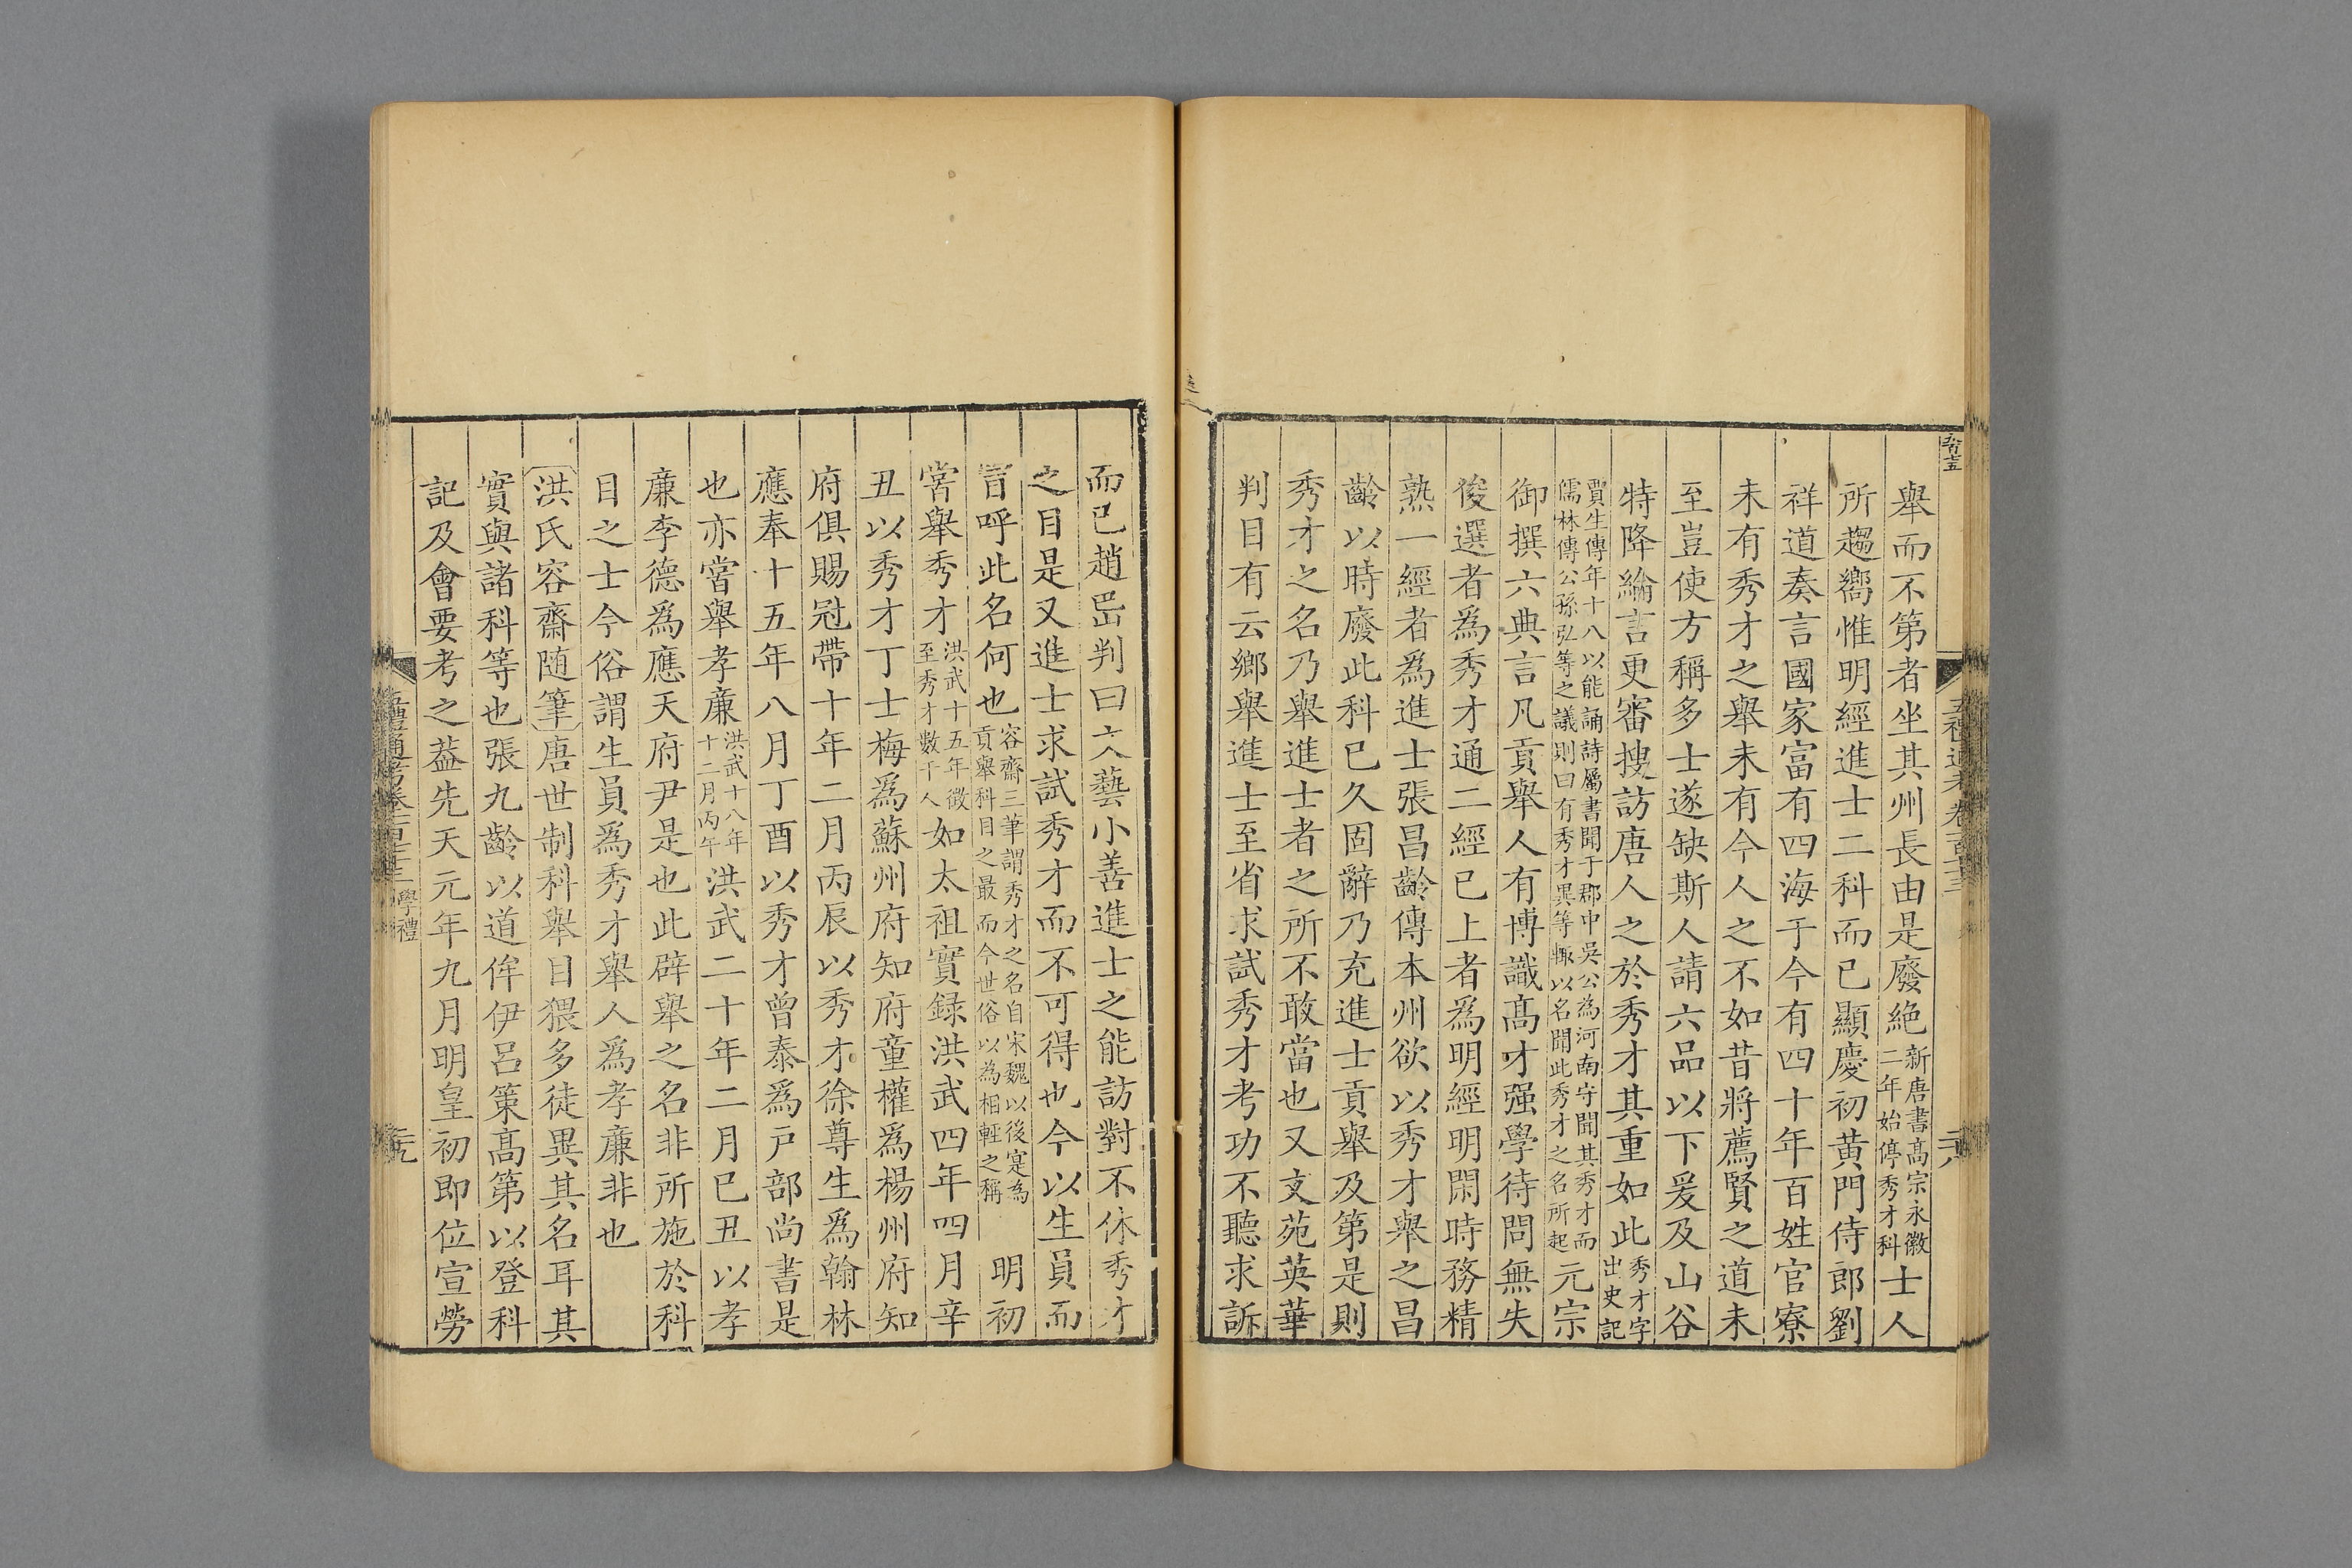 舉而不第者坐其州長由是廢絶新唐書髙宗永徽二年始停秀才科士人
所趨嚮惟明經進士二科而已顯慶初黄門侍郎劉
祥道奏言國家富有四海于今有四十年百姓官寮
未有秀才之舉未有今人之不如昔將薦賢之道未
至豈使方稱多士遂缺斯人請六品以下爰及山谷
特降綸言更審搜訪唐人之於秀才其重如此秀才字出史記
賈生傳年十八以能誦詩屬書聞于郡中吳公為河南守聞其秀才而儒林傳公孫弘等之議則曰有秀才異等輙以名聞此秀才之名所起元宗
御撰六典言凡貢舉人有博識髙才强學待問無失
俊選者爲秀才通二經已上者爲明經明閑時務精
熟一經者爲進士張昌齡傳本州欲以秀才舉之昌
齡以時廢此科已久固辭乃充進士貢舉及第是則
秀才之名乃舉進士者之所不敢當也又文苑英華
判目有云鄉舉進士至省求試秀才考功不聽求訴
而已趙岊判曰文藝小善進士之能訪對不休秀才
之目是又進士求試秀才而不可得也今以生員而
冒呼此名何也容齋三筆謂秀才之名自宋魏以後寔為貢舉科目之最而今世俗以為相輕之稱明初
嘗舉秀才洪武十五年徵至秀才數千人如太祖實録洪武四年四月辛
丑以秀才丁士梅爲蘇州府知府童權爲楊州府知
府俱賜冠帶十年二月丙辰以秀才徐尊生爲翰林
應奉十五年八月丁酉以秀才曾泰爲户部尚書是
也亦嘗舉孝廉洪武十八年十二月丙午洪武二十年二月巳丑以孝
廉李德爲應天府尹是也此辟舉之名非所施於科
目之士今俗謂生員爲秀才舉人爲孝廉非也
洪氏容齋随筆唐世制科舉目猥多徒異其名耳其
實與諸科等也張九齡以道侔伊呂策髙第以登科
記及會要考之葢先天元年九月明皇初即位宣勞
五禮通考卷一百七十三 學禮